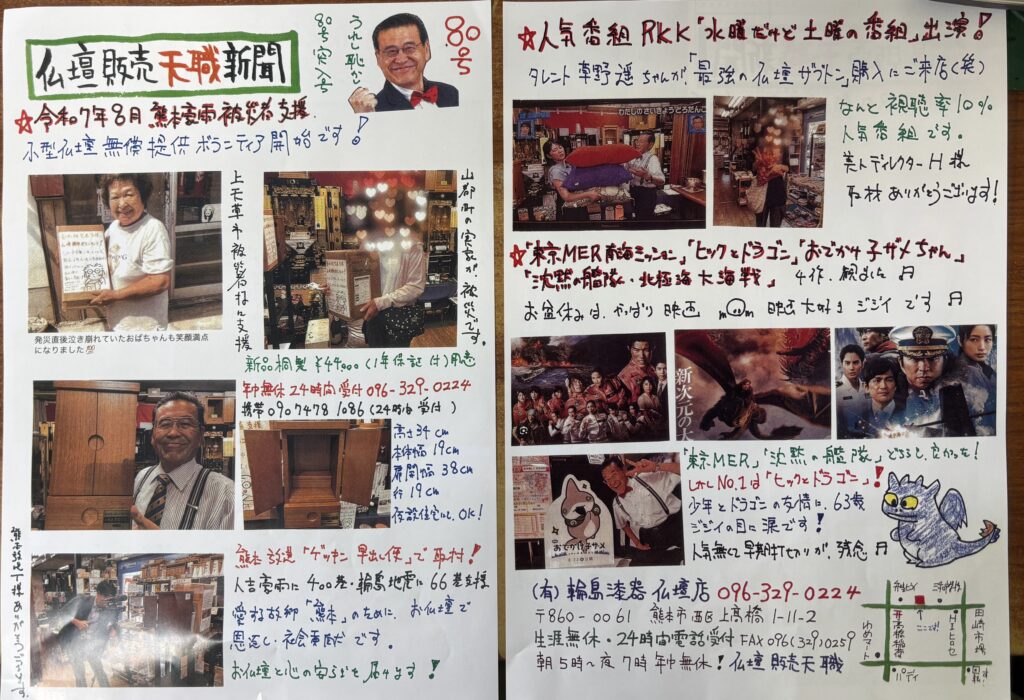 仏壇販売天職新聞
うれし恥ずかし
80号突入号
80号
☆令和7年8月 熊本豪雨被災者支援
小型仏壇無償提供ボランティア開始です!
上天草市被災者様に支援
山都町の実家が被災です。
発災直後泣き崩れていたおばちゃんも笑顔満点
になりました💯
新品桐製 ¥44,000(1年保証付)用意
年中無休24時間受付 096-329-0224
携帯 090 7478 1086 (24時間受付)
高さ34cm
本体幅19cm
扉開幅38cm
行19cm
仮設住宅にも、OK!
熊本放送「ゲツキン早出し便」で取材!
人吉豪雨に400基・輪島地震に66基支援
愛する故郷"熊本"のために、お仏壇で
恩返し・社会貢献です。
お仏壇と心の安らぎを届けます!
様ありがとうございます。
☆人気番組RKK「水曜だけど土曜の番組」出演!
タレント草野遥ちゃんが「最強の仏壇ザブトン」購入にご来店(笑)
わたしのさいきょうとろたんこ
なんと視聴率10%
人気番組です。
美人ディレクターH様
取材ありがとうございます!
☆「東京MER南海ミッション」「ヒックとドラゴン」「おでかけ子ザメちゃん」
「沈黙の艦隊・北極海大海戦」4作、観ました♬
お盆休みは、やっぱり映画 m(__)m 映画大好きジジイです♬
新次元の大
おでかけ子ザメ
「東京MER」「沈黙の艦隊」どちらも良かった!
しかしNo.1は「ヒックとドラゴン」!
少年とドラゴンの友情に、63歳
ジジイの目に涙です!
人気無くて早期打切りが残念♬
(有)輪島漆器仏壇店 096-329-0224
〒860-0061 熊本市西区上高橋1-11-2
生涯無休・24時間電話受付 FAX096(329)0259
朝5時~夜7時 年中無休!仏壇販売天職
ここです!
高橋稲荷
ゆめマート
田崎市場